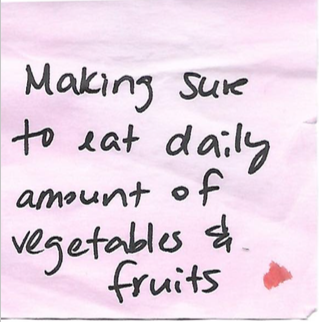 Making sure
to eat daily
amount of
vegetables &
fruits